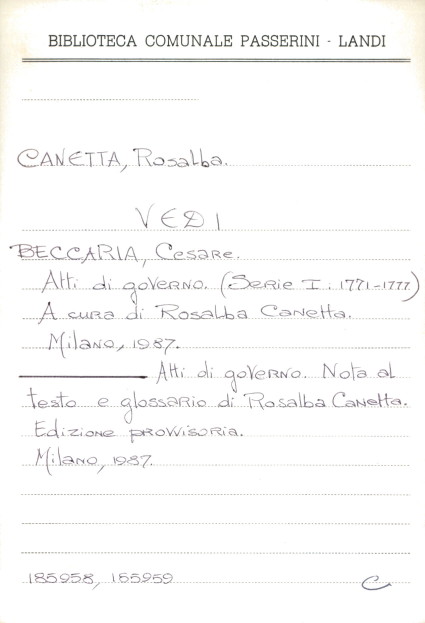 BIBLIOTECA COMUNALE PASSERINI - LANDI
CANETTA, Rosalba.
VEDI
BECCARIA, Cesare.
Atti di governo. (Serie I : 1771-1777)
A cura di Rosalba Canetta.
Milano, 1987.
——— Atti di governo. Nota al
testo e glossario di Rosalba Canetta.
Edizione provvisoria.
Milano, 1987.
185958, 185959
C